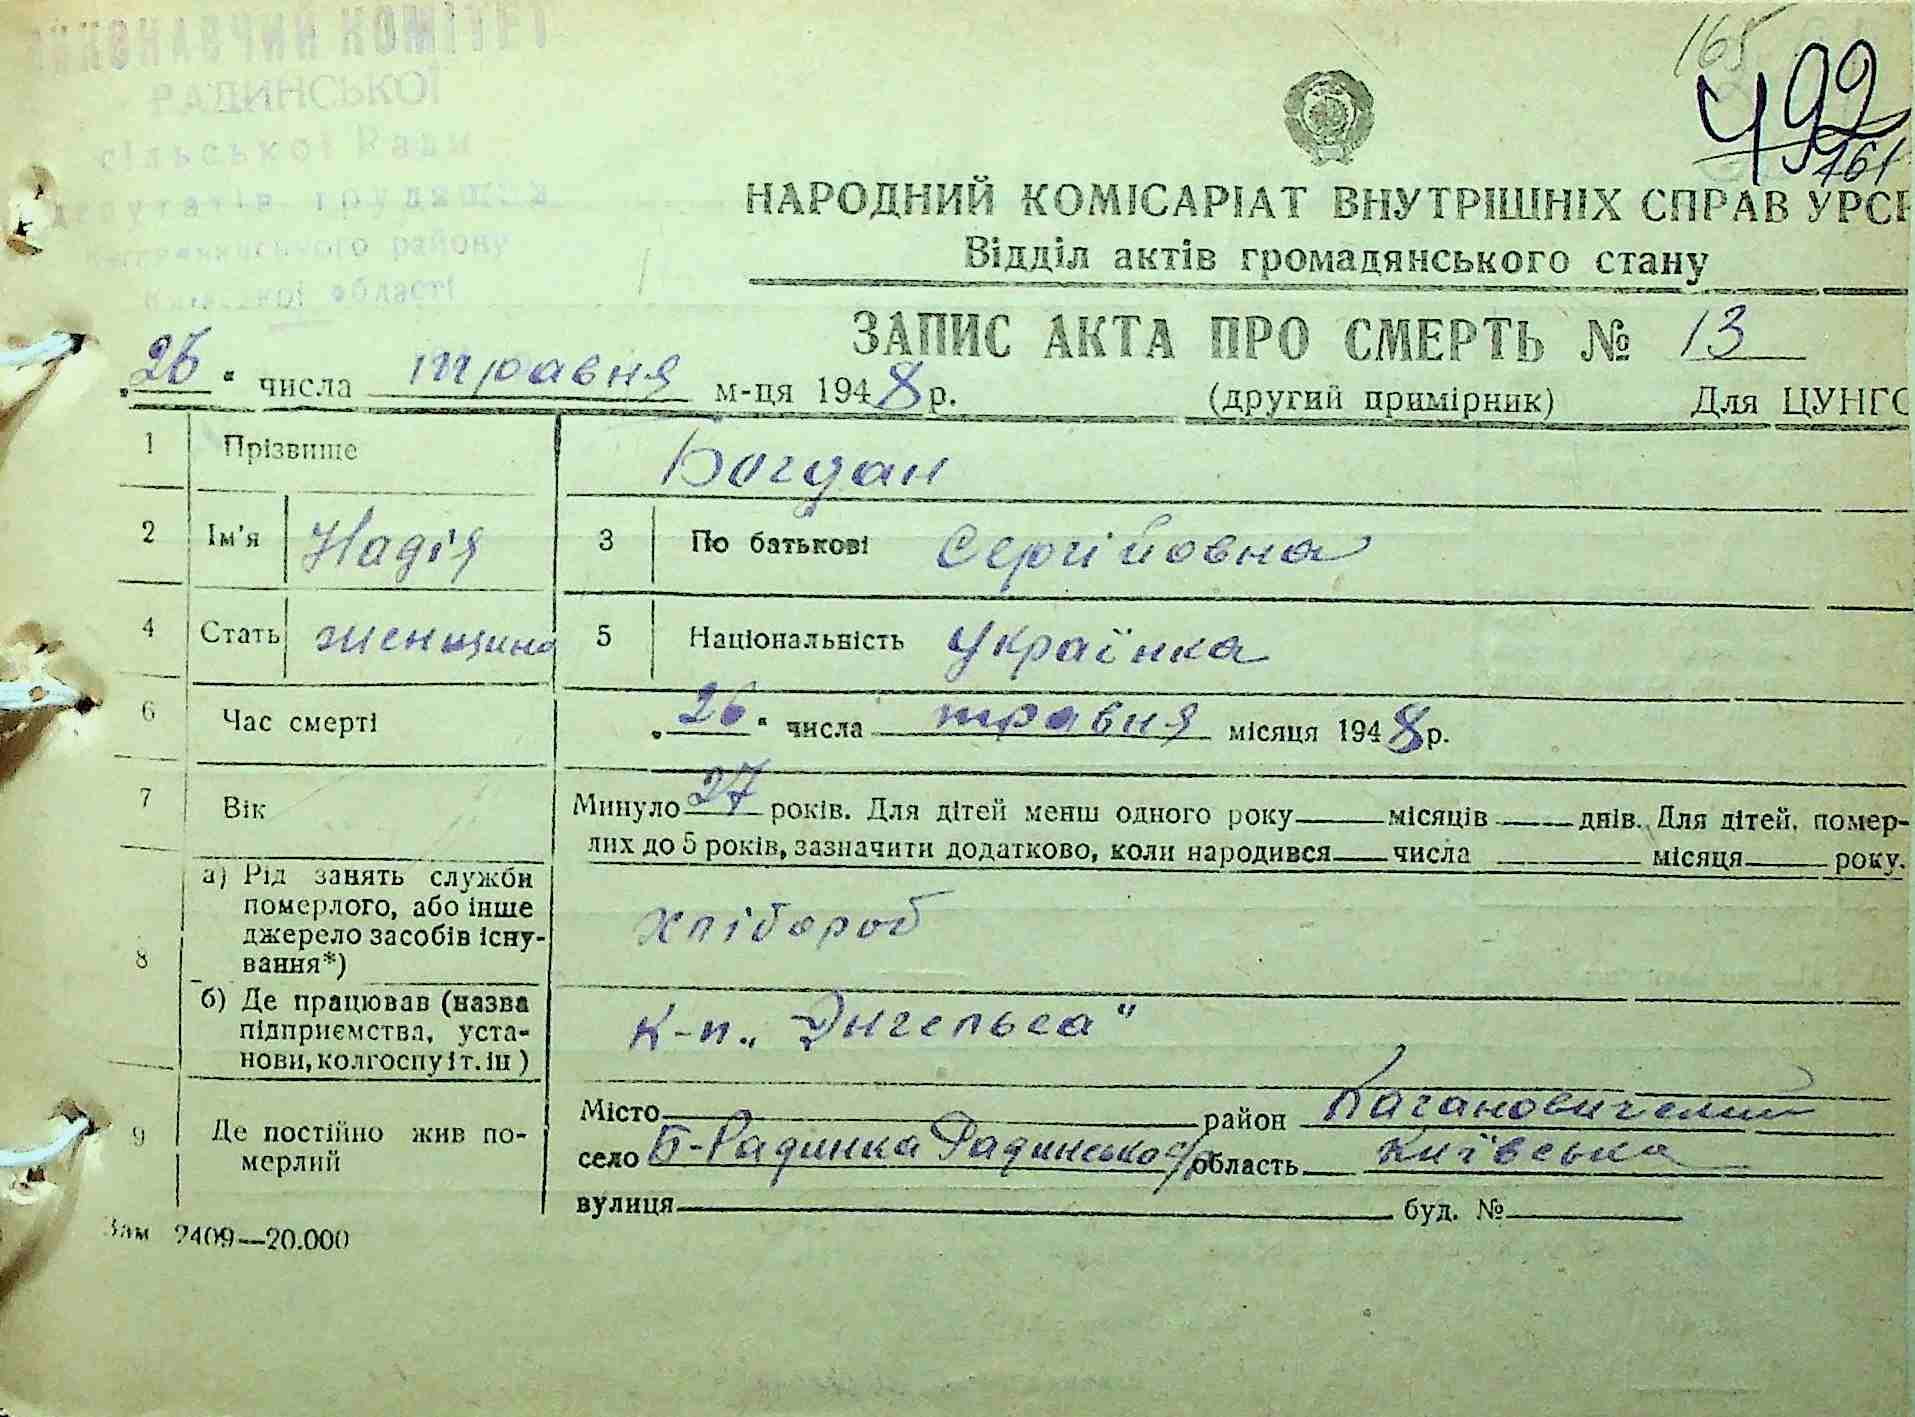 ВИКОНАВЧИЙ КОМІТЕТ
РАДИНСЬКОЇ
сільської Ради
депутатів трудящих
району
Київської області
165
492
161
НАРОДНИЙ КОМІСАРІАТ ВНУТРІШНІХ СПРАВ УРСР
Відділ актів громадянського стану
ЗАПИС АКТА ПРО СМЕРТЬ № 13
„26“ числа травня м-ця 1948 р. (другий примірник) Для ЦУНГО
1 Прізвище Богдан
2 Ім'я Надія 3 По батькові Сергійовна
4 Стать женщина 5 Національність українка
6 Час смерті „26“ числа травня місяця 1948 р.
7 Вік Минуло 27 років. Для дітей менш одного року місяців днів. Для дітей, помер-
лих до 5 років, зазначити додатково, коли народився числа місяця року.
8 а) Рід занять служби
померлого, або інше
джерело засобів існу-
вання*)
хлібороб
б) Де працював (назва
підприємства, уста-
нови, колгоспу і т. ін)
к-п „Энгельса"
9 Де постійно жив по-
мерлий
Місто район Кагановичский
село Б-Радинка Радинсько с/р область Київська
вулиця буд. №
Зам 2409—20.000